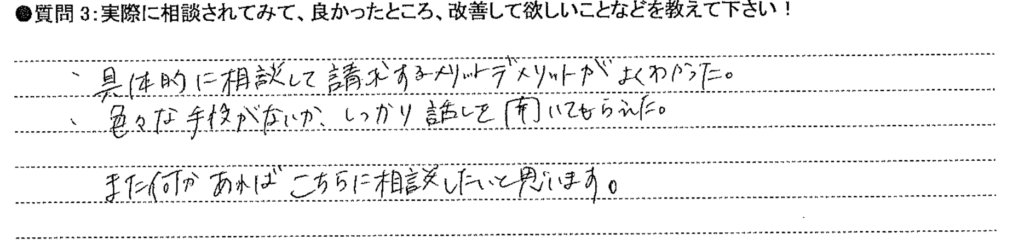 ●質問3:実際に相談されてみて、良かったところ、改善して欲しいことなどを教えて下さい!
、具体的に相談して請求するメリットデメリットがよくわかった。
、色々な手段がないか、しっかり話しを聞いてもらえた。
また何かあればこちらに相談したいと思います。